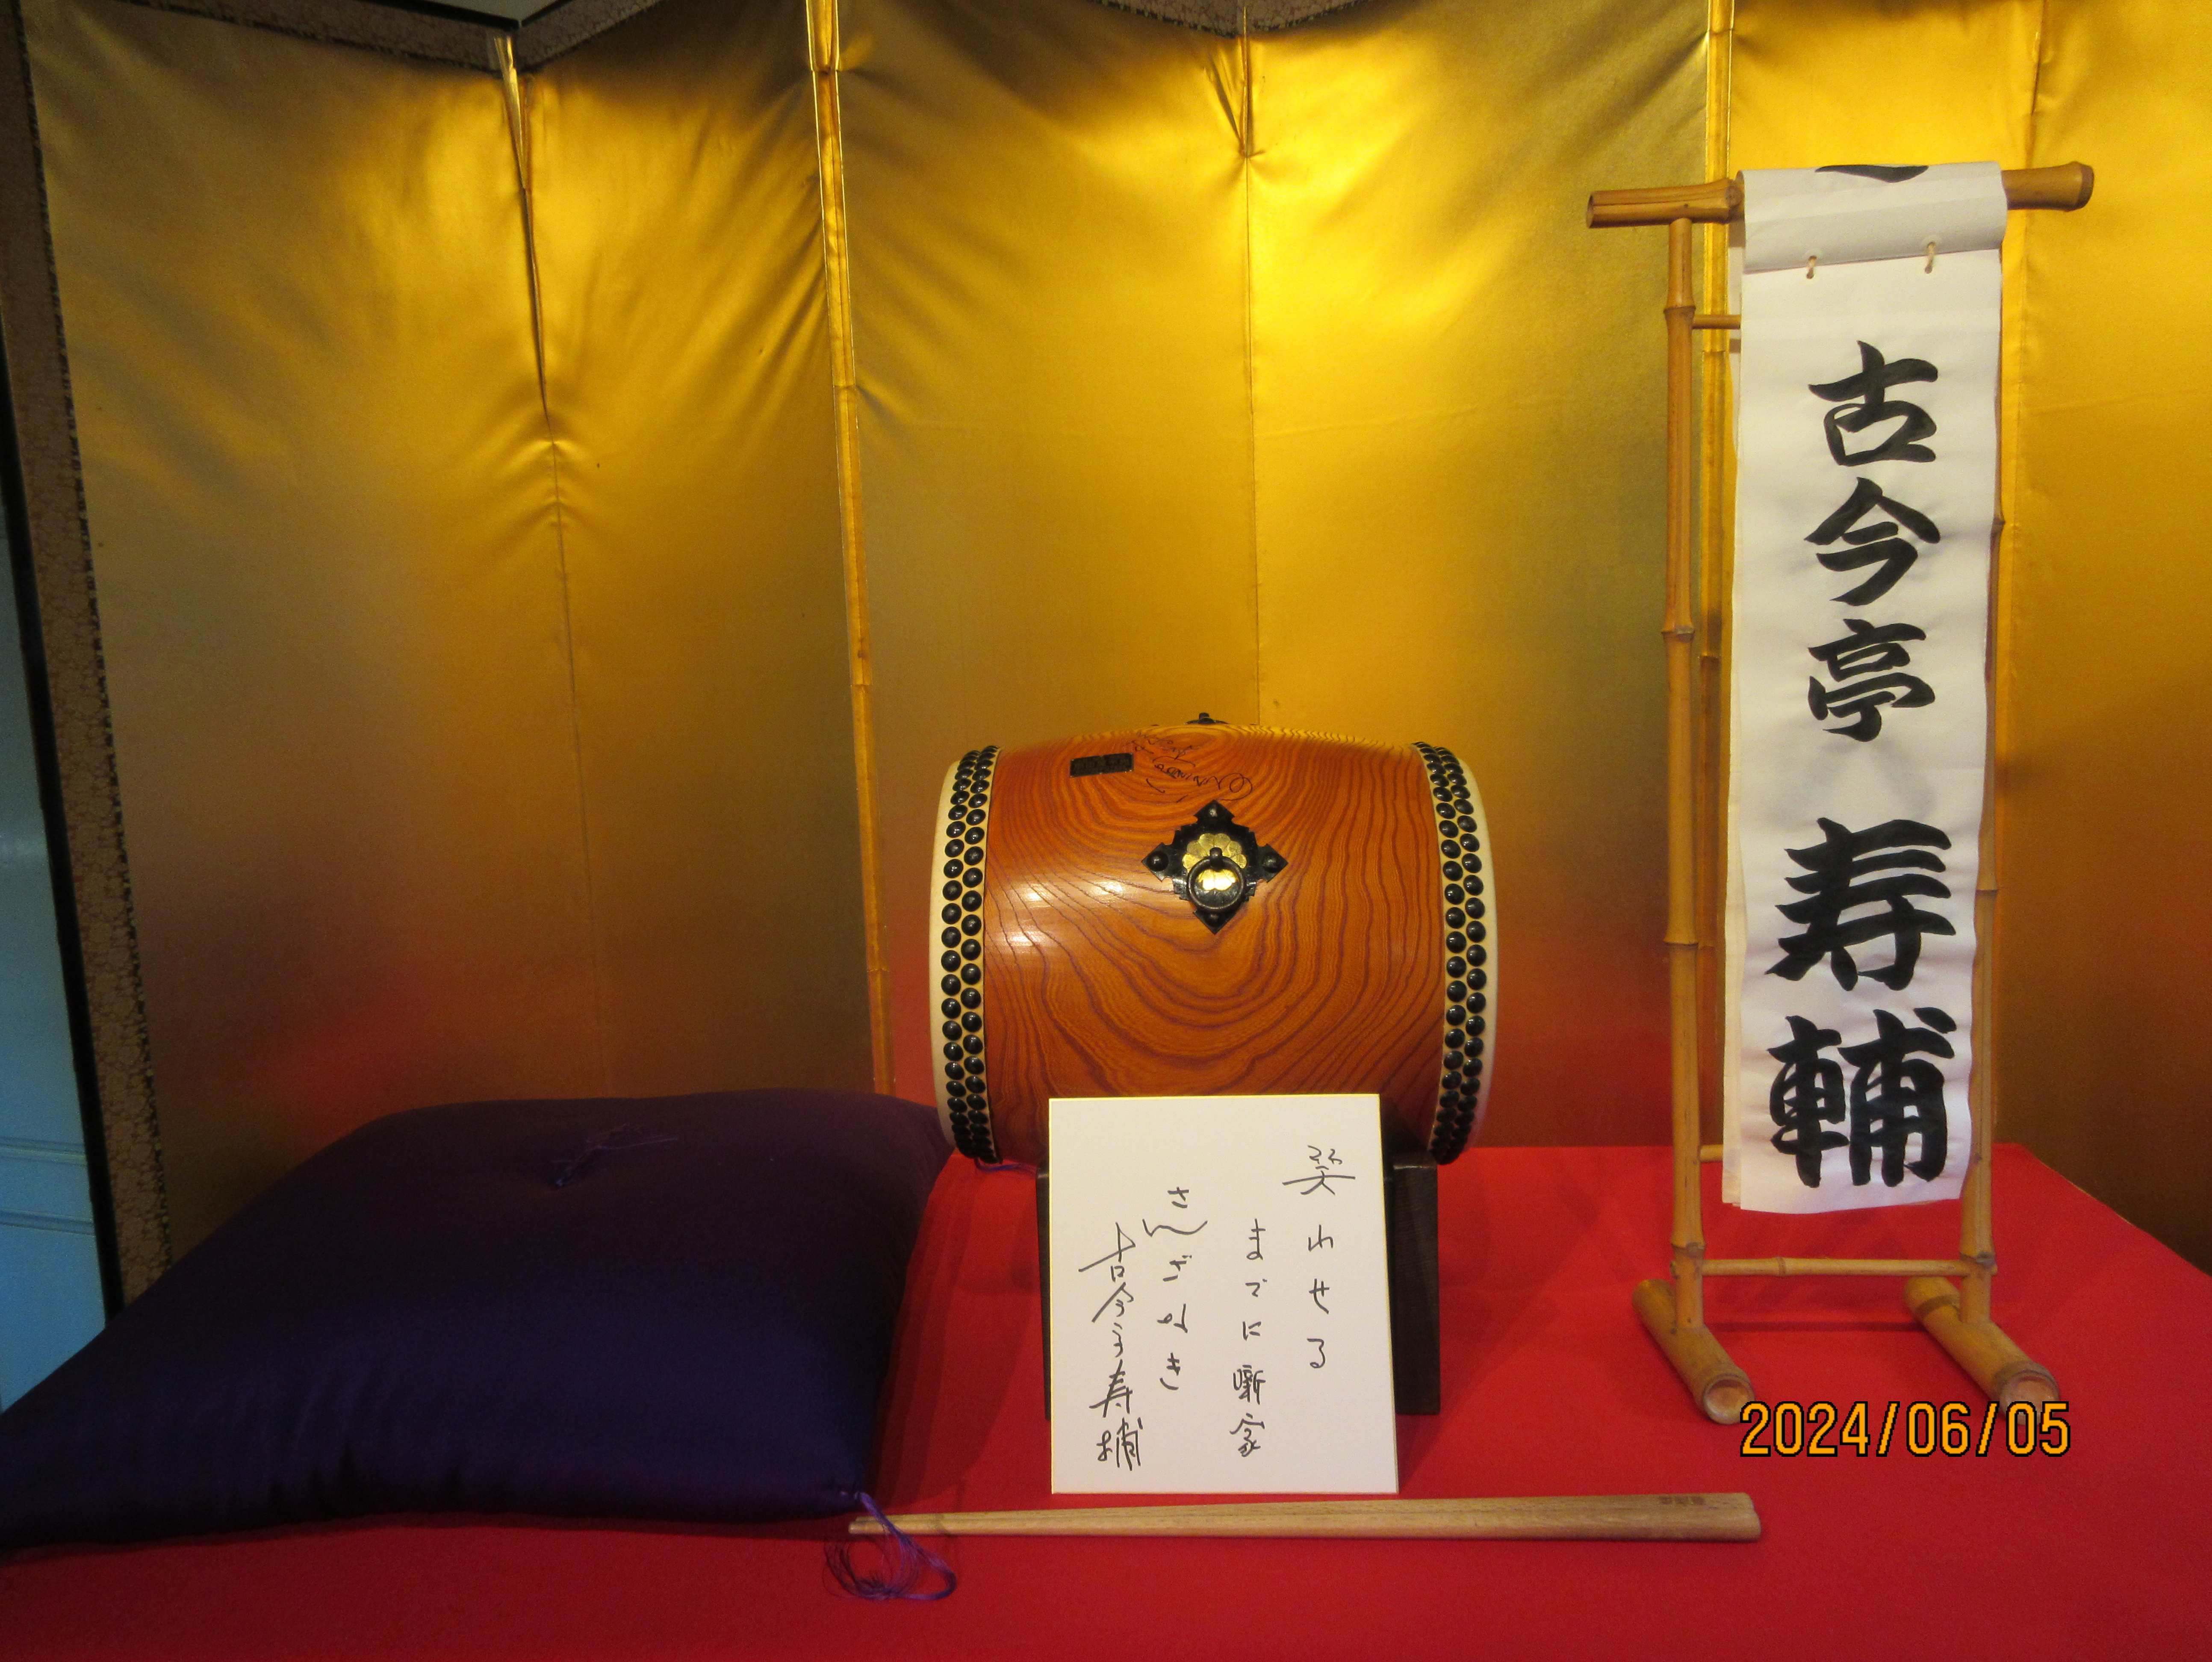 古今亭 寿輔
笑わせる
までに噺家
さんざなき
古今亭寿輔
2024/06/05